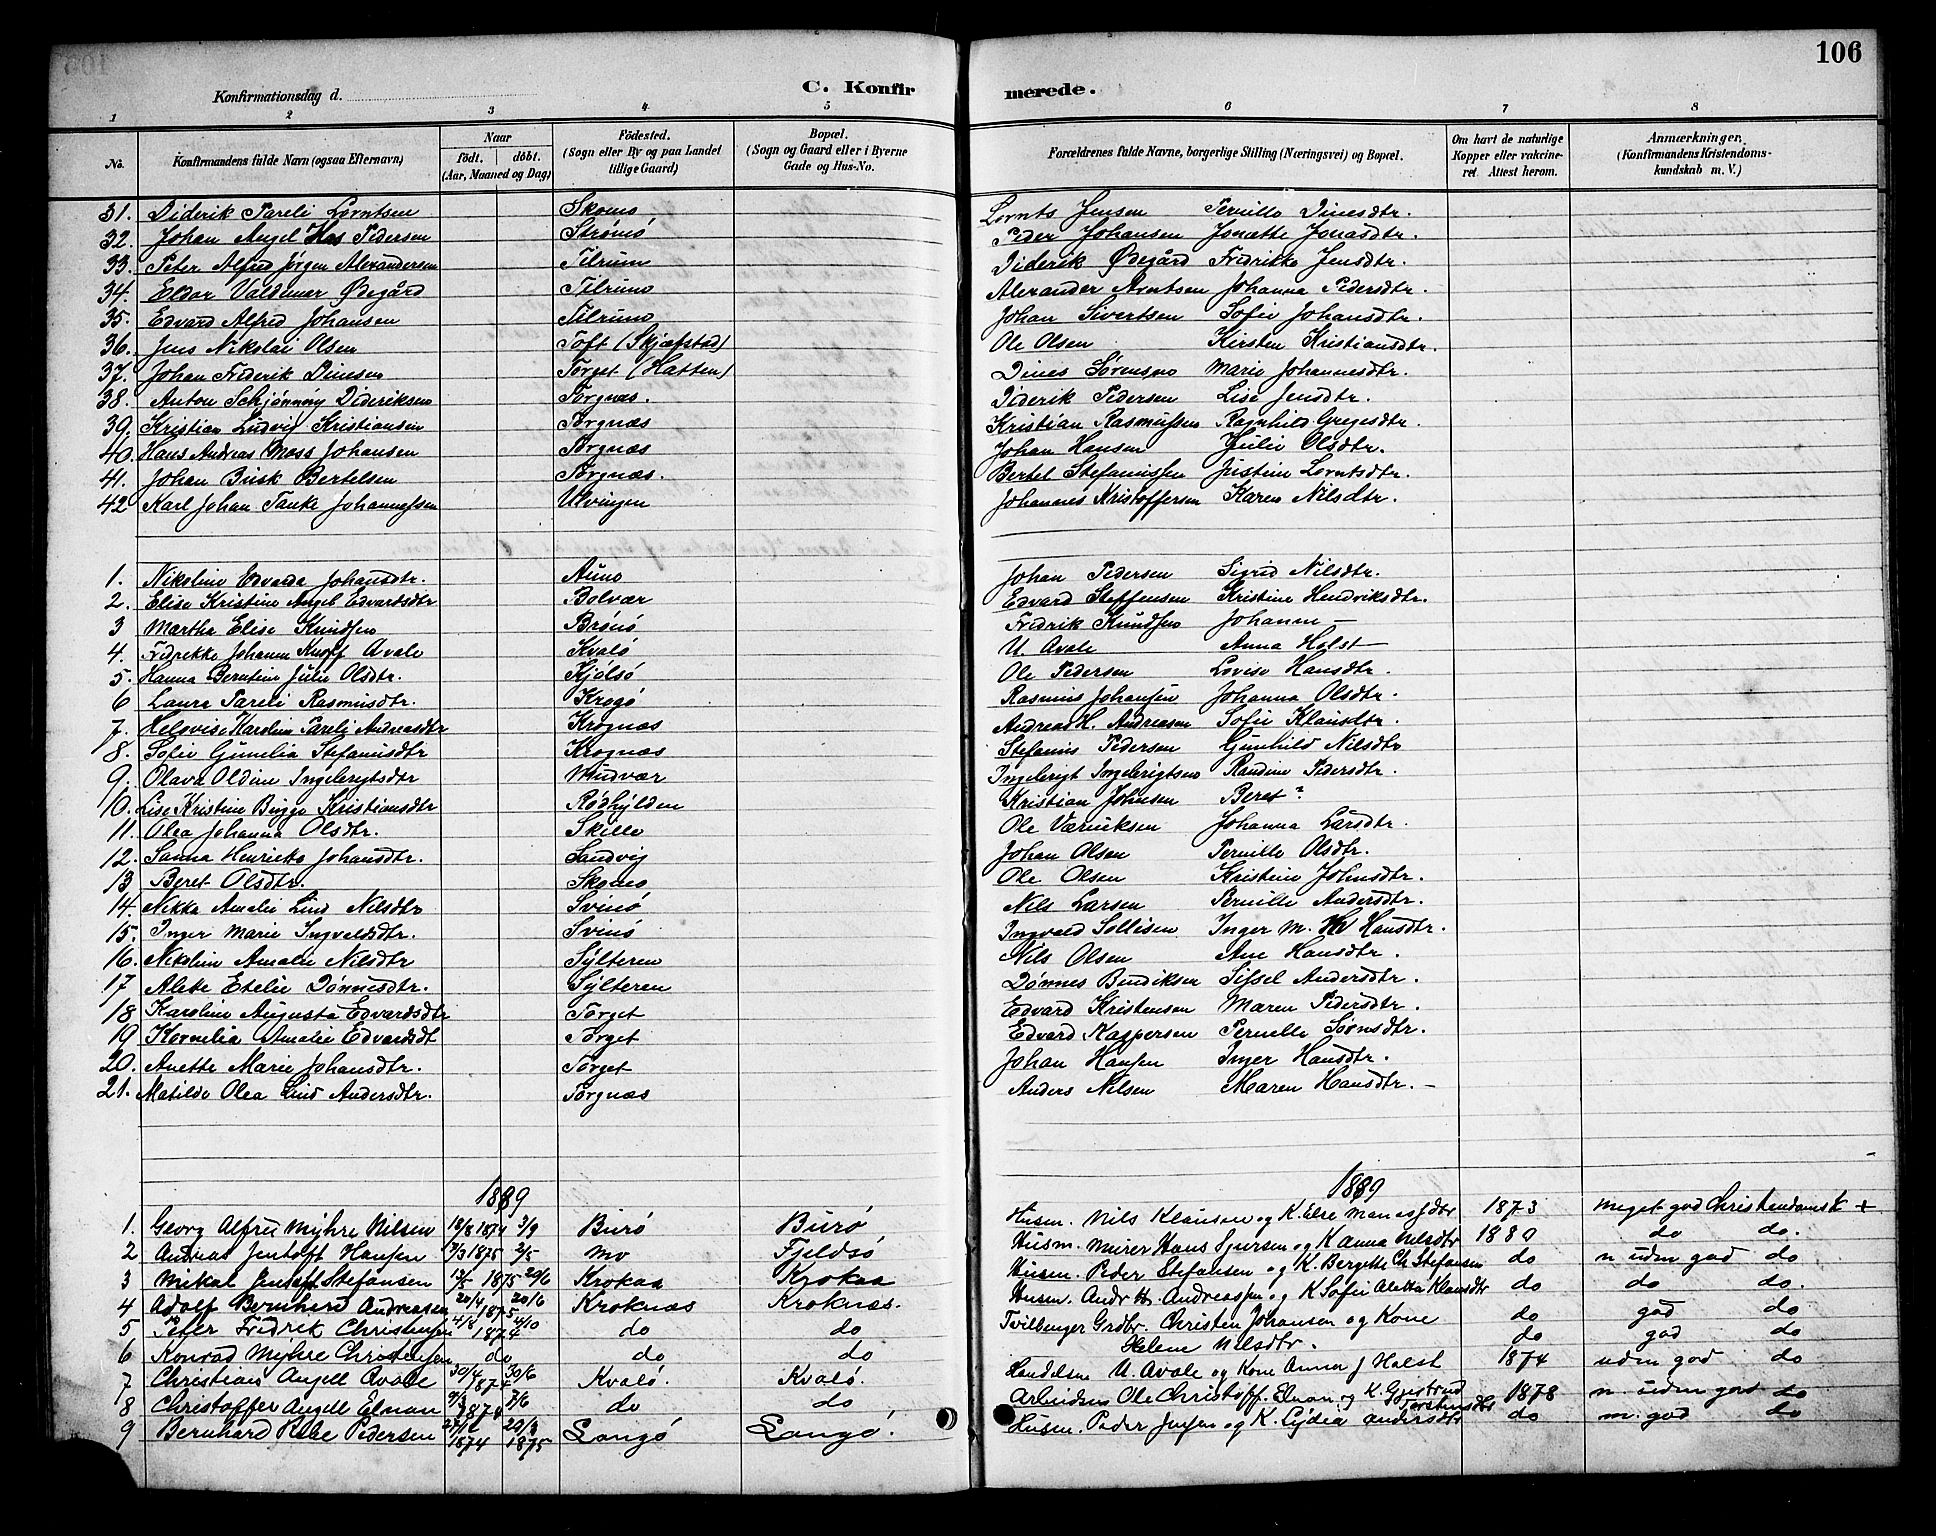 106
Konfirmationsdag d.
C. Konfirmerede.
1 2 3 4 5 6 7 8
No. Konfirmandens fulde Navn (ogsaa Efternavn) Naar født. døbt. (Aar, Maaned og Dag) Födested. (Sogn eller By og paa Landet tillige Gaard) Bopæl. (Sogn og Gaard eller i Byerne Gade og Hus-No. Forældrenes fulde Navne, borgerlige Stilling (Næringsvei) og Bopæl. Om havt de naturlige Kopper eller vakcineret. Attest herom. Anmærkninger. (Konfirmandens Kristendomskundskab m. V.)
31. Diderik Pareli Lorntsen Skomo Lornts Jensen Pernille Dinesdtr.
32. Johan Angel Has Pedersen Strømø Peder Johansen Jonette Jonasdtr.
33. Peter Alfred Jørgen Alexandersen Tilrum Diderik Ødegård Fredrikke Jensdtr.
34. Eldor Valdemar Ødegård Tilrum Alexander Arntsen Johanna Pedersdtr.
35. Edvard Alfred Johansen Tilrum Johan Sivertsen Sofie Johansdtr.
36. Jens Nikolai Olsen Toft (Skjæfstad) Ole Olsen Kirsten Kristiansdtr.
37. Johan Friderik Dinesen Torget (Hatten) Dines Sørensen Marie Johannesdtr.
38. Anton Schjønning Dideriksen Torgnæs. Diderik Pedersen Lise Jensdtr.
39. Kristian Ludvig Kristiansen Torgnæs Kristian Rasmussen Ragnhild Gregesdtr.
40. Hans Andreas Moss Johansen Torgnæs Johan Hansen Julie Olsdtr.
41. Johan Busk Bertelsen Torgnæs. Bertel Stefanussen Justine Lorntsdtr.
42 Karl Johan Tanke Johannessen Ulvingen Johannes Kristoffersen Karen Nilsdtr.
1. Nikoline Edvarda Johansdtr. Auno Johan Pedersen Sigrid Nilsdtr.
2. Elise Kristine Angel Edvardsdtr Bolvær Edvard Steffensen Kristine Hendriksdtr.
3 Martha Elise Knudsen Brønø Fredrik Knudsen Johanne —
4. Fredrikke Johanne Knoff Avale Kvalø U. Avale Anna Holst —
5. Hanna Berntine Julie Olsdtr. Kjølsø Ole Pedersen Lovise Hansdtr.
6 Laura Pareli Rasmusdtr. Krogø Rasmus Johansen Johanna Olsdtr.
7. Helovise Karoline Pareli Andreasdtr Krognæs Andreas H. Andreasen Sofie Klausdtr.
8. Sofie Gunelia Stefanusdtr Krognæs Stefanus Pedersen Gunhild Nilsdtr
9. Olava Oldine Ingebrigtsdtr Mudvær Ingebrigt Ingebrigtsen Randine Pedersdtr.
10. Lise Kristine Bugge Kristiansdtr Rødhylden Kristian Johnsen Beret ?
11. Olea Johanna Olsdtr. Skille Ole Værniksen Johanna Larsdtr.
12. Sanna Henrikke Johansdtr. Sandvig Johan Olsen Pernille Olsdtr.
13 Beret Olsdtr. Skomo Ole Olsen Kristine Johnsdtr.
14. Nikka Amalie Lind Nilsdtr Svinø Nils Larsen Pernille Andersdtr.
15. Inger Marie Ingveldsdtr. Svinø Ingvald Sollisen Inger M. Hansdtr.
16. Nikoline Amalie Nilsdtr Sylteren Nils Olsen Ane Hansdtr.
17 Alette Etelie Dønnesdtr. Sylteren Dønnes Bendiksen Sissel Andersdtr.
18 Karoline Augusta Edvardsdtr Torget Edvard Kristensen Maren Pedersdtr.
19 Kornelia Amalie Edvardsdt Torget Edvard Kaspersen Pernille Sørnsdtr.
20. Anette Marie Johansdtr. Torget Johan Hansen Inger Hansdtr.
21. Matilde Olea Lind Andersdtr. Torgnæs Anders Nilsen Maren Hansdtr. —
1889 1889
1. Georg Alfred Myhre Nilsen 18/8 1874 3/9 Burø Burø Husm. Nils Klausen og K. Else Monesdtr 1873 meget god Christendomsk +
2 Andreas Jentoft Hansen 19/3 1875 2/5 Mo Fjeldsø Husm. Murer Hans Sjursen og K Anna Nilsdtr 1880 do do.
3 Mikal Jentoft Stefansen 13/5 1875 20/6 Krokaa Krokaa Husm. Peder Stefansen og K. Bergitte Ch. Stefansen do n. uden god do
4 Adolf Bernhard Andreasen 20/4 1875 20/6 Kroknæs Kroknæs. Husm. Andr. H. Andreassen og K Sofie Aletta Klausdtr do do do.
5 Peter Fredrik Christensen 4/8 1874 4/10 do do Tvillinger Grdbr. Christen Johansen og Kone do god do
6 Konrad Myhre Christensen do do do Helene Nilsdtr. do god do
7 Christian Angell Avale 30/4 1874 30/6 Kvalø. Kvalø. Handelsm U. Avale og Kone Anna J Holst 1874 uden god do
8 Christoffer Angell Elnan 9/3 1874 7/6 do do Arbeidsm Ole Christoff. Elnan og K. Gjertrud Torstensdtr 1878 n. uden god do
9 Bernhard Rabe Pedersen 27/12 1874 20/8 1875 Langø Langø. Husm. Peder Jensen og K. Lydia Andersdtr do m. god do